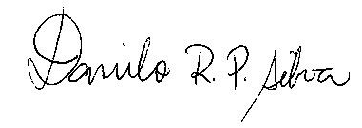 Danilo R. P. Silva